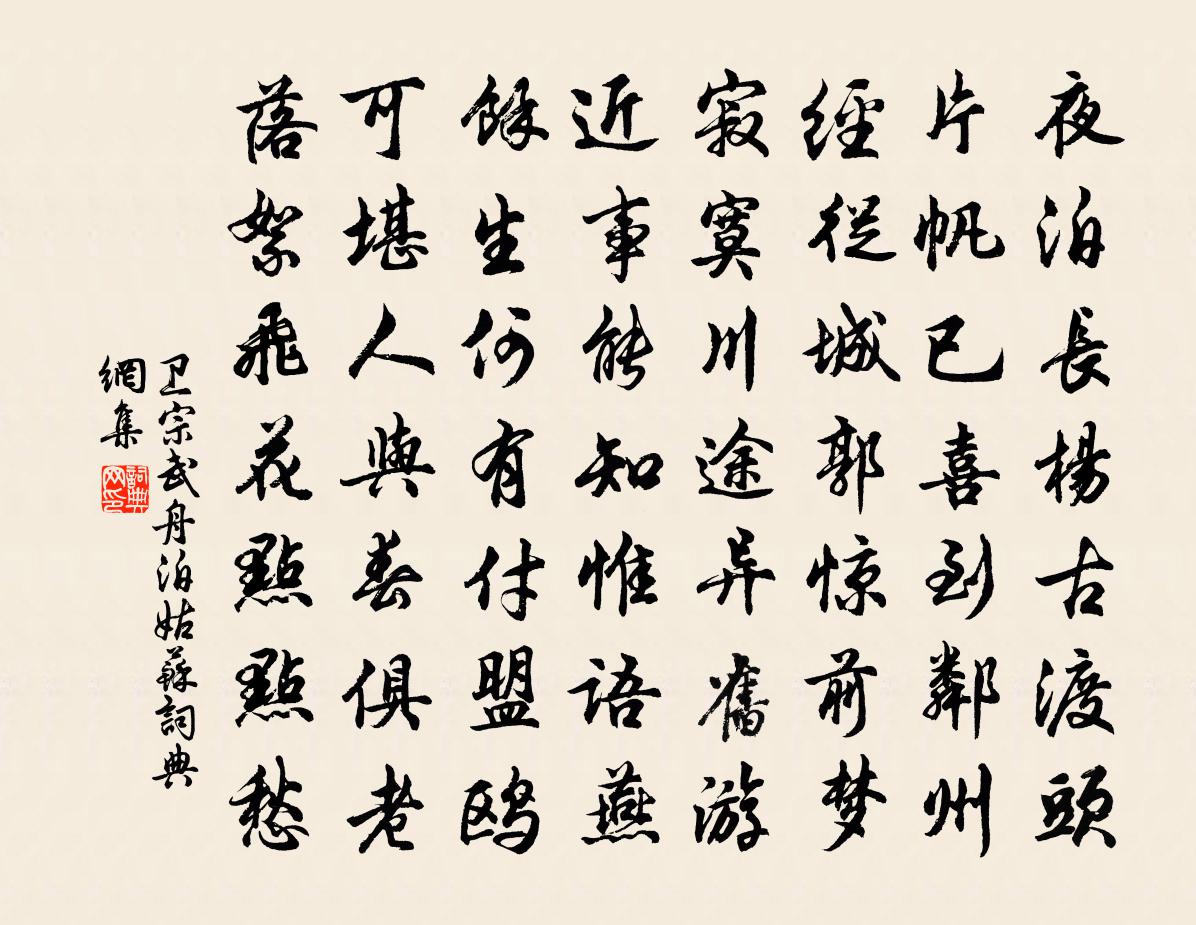 夜泊長楊古渡頭
片帆已喜到鄰州
經從城郭惊前梦
寂寞川途异舊游
近事能知惟語燕
餘生何有付盟鸥
可堪人與春俱老
落絮飛花點點愁
卫宗武舟泊姑蘇詞典
網集
詞典网印